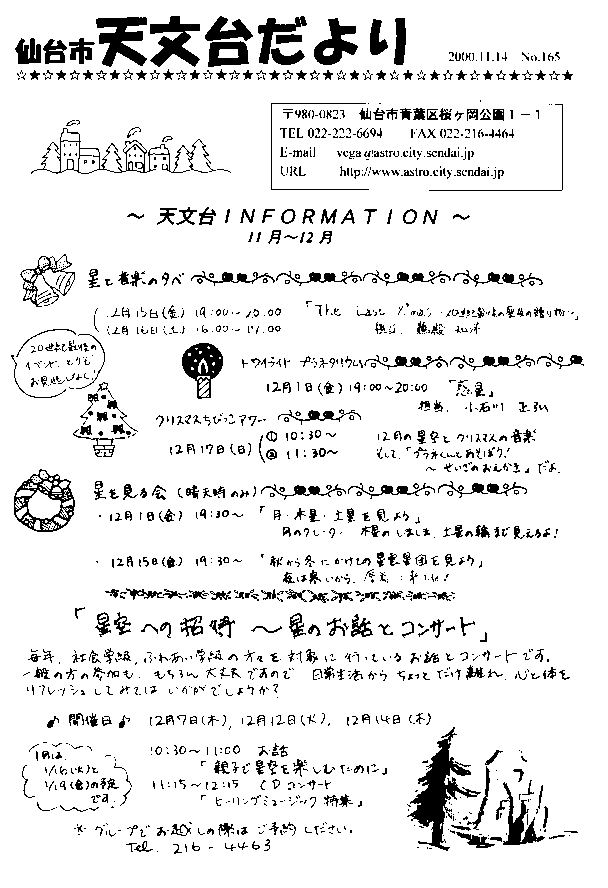 仙台市 天文台だより 2000.11.14 No.165
〒980-0823 仙台市青葉区桜ヶ岡公園1-1
TEL 022-222-6694 FAX 022-216-4464
E-mail vega@astro.city.sendai.jp
URL http://www.astro.city.sendai.jp
～ 天文台INFORMATION ～
11月～12月
星と音楽の夕べ
12月15日(金) 19:00～20:00 「The Last X'mas
12月16日(土) 16:00～17:00 担当.
20世紀最後の
イベント、とくと
お見逃しなく!
トワイライト プラネタリウム
12月1日(金) 19:00～20:00 「惑星」
担当. 小石川 正弘
クリスマスちびっこアワー
12月17日(日) ① 10:30～ 12月の星空とクリスマスの音楽
② 11:30～ そして、「プラネくんとあそぼう!
～せいざのおえかき」だよ.
星を見る会 (晴天時のみ)
・12月1日(金) 19:30～ 「月・木星・土星を見よう」
月のクレーター・木星のしましま、土星の輪まで見えるよ!
・12月15日(金) 19:30～ 「秋から冬にかけての星雲星団を見よう」
夜は寒いから、
「星空への招待 ～星のお話とコンサート」
毎年、社会学級、ふれあい学級の方々を対象に行っているお話とコンサートです。
一般の方の参加も、もちろん大丈夫ですので 日常生活からちょっとだけ離れ、心と体を
リフレッシュしてみては いかがでしょうか?
♪開催日♪ 12月7日(木), 12月12日(火), 12月14日(木)
1月は、
1/16(火)と
1/19(金)の予定
です.
10:30～11:00 お話
「親子で星空を楽しむために」
11:15～12:15 CDコンサート
「ヒーリングミュージック特集」
※ グループでお越しの際はご予約ください。
Tel. 216-4463